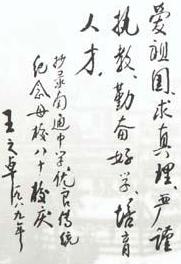 爱祖国、求真理、严谨
执教、勤奋好学、培育
人才。
抄录南通中学优良传统
纪念母校八十校庆
王之卓
一九八九年